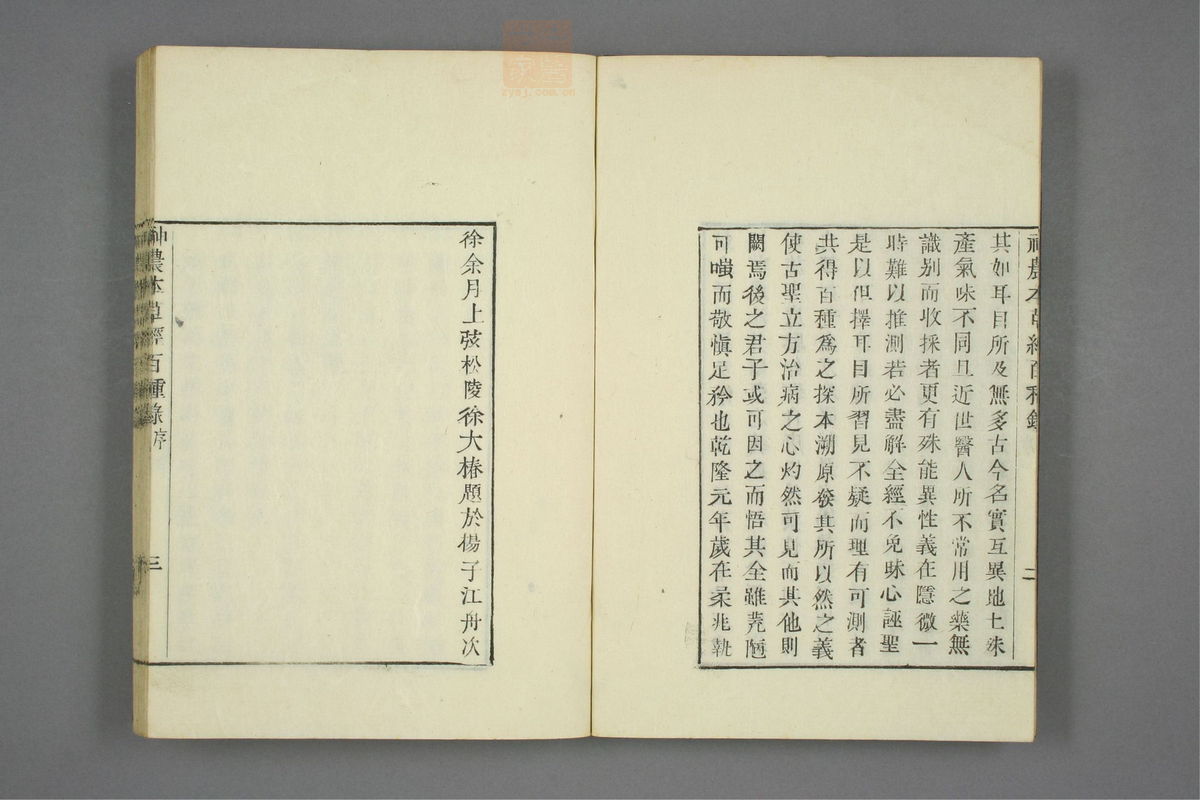 神農本草經百種錄
二
其如耳目所及無多古今名實互異地土殊
產氣味不同且近世醫人所不常用之藥無
識別而收採者更有殊能異性義在隱微一
時難以推測若必盡解全經不免昧心誣聖
是以但擇耳目所習見不疑而理有可測者
共得百種爲之探本溯原發其所以然之義
使古聖立方治病之心灼然可見而其他則
闕焉後之君子或可因之而悟其全雖荒陋
可嗤而敬愼足矜也乾隆元年歲在柔兆執
徐余月上弦松陵徐大椿題於楊子江舟次
神農本草經百種錄 序
三
zysj.com.cn